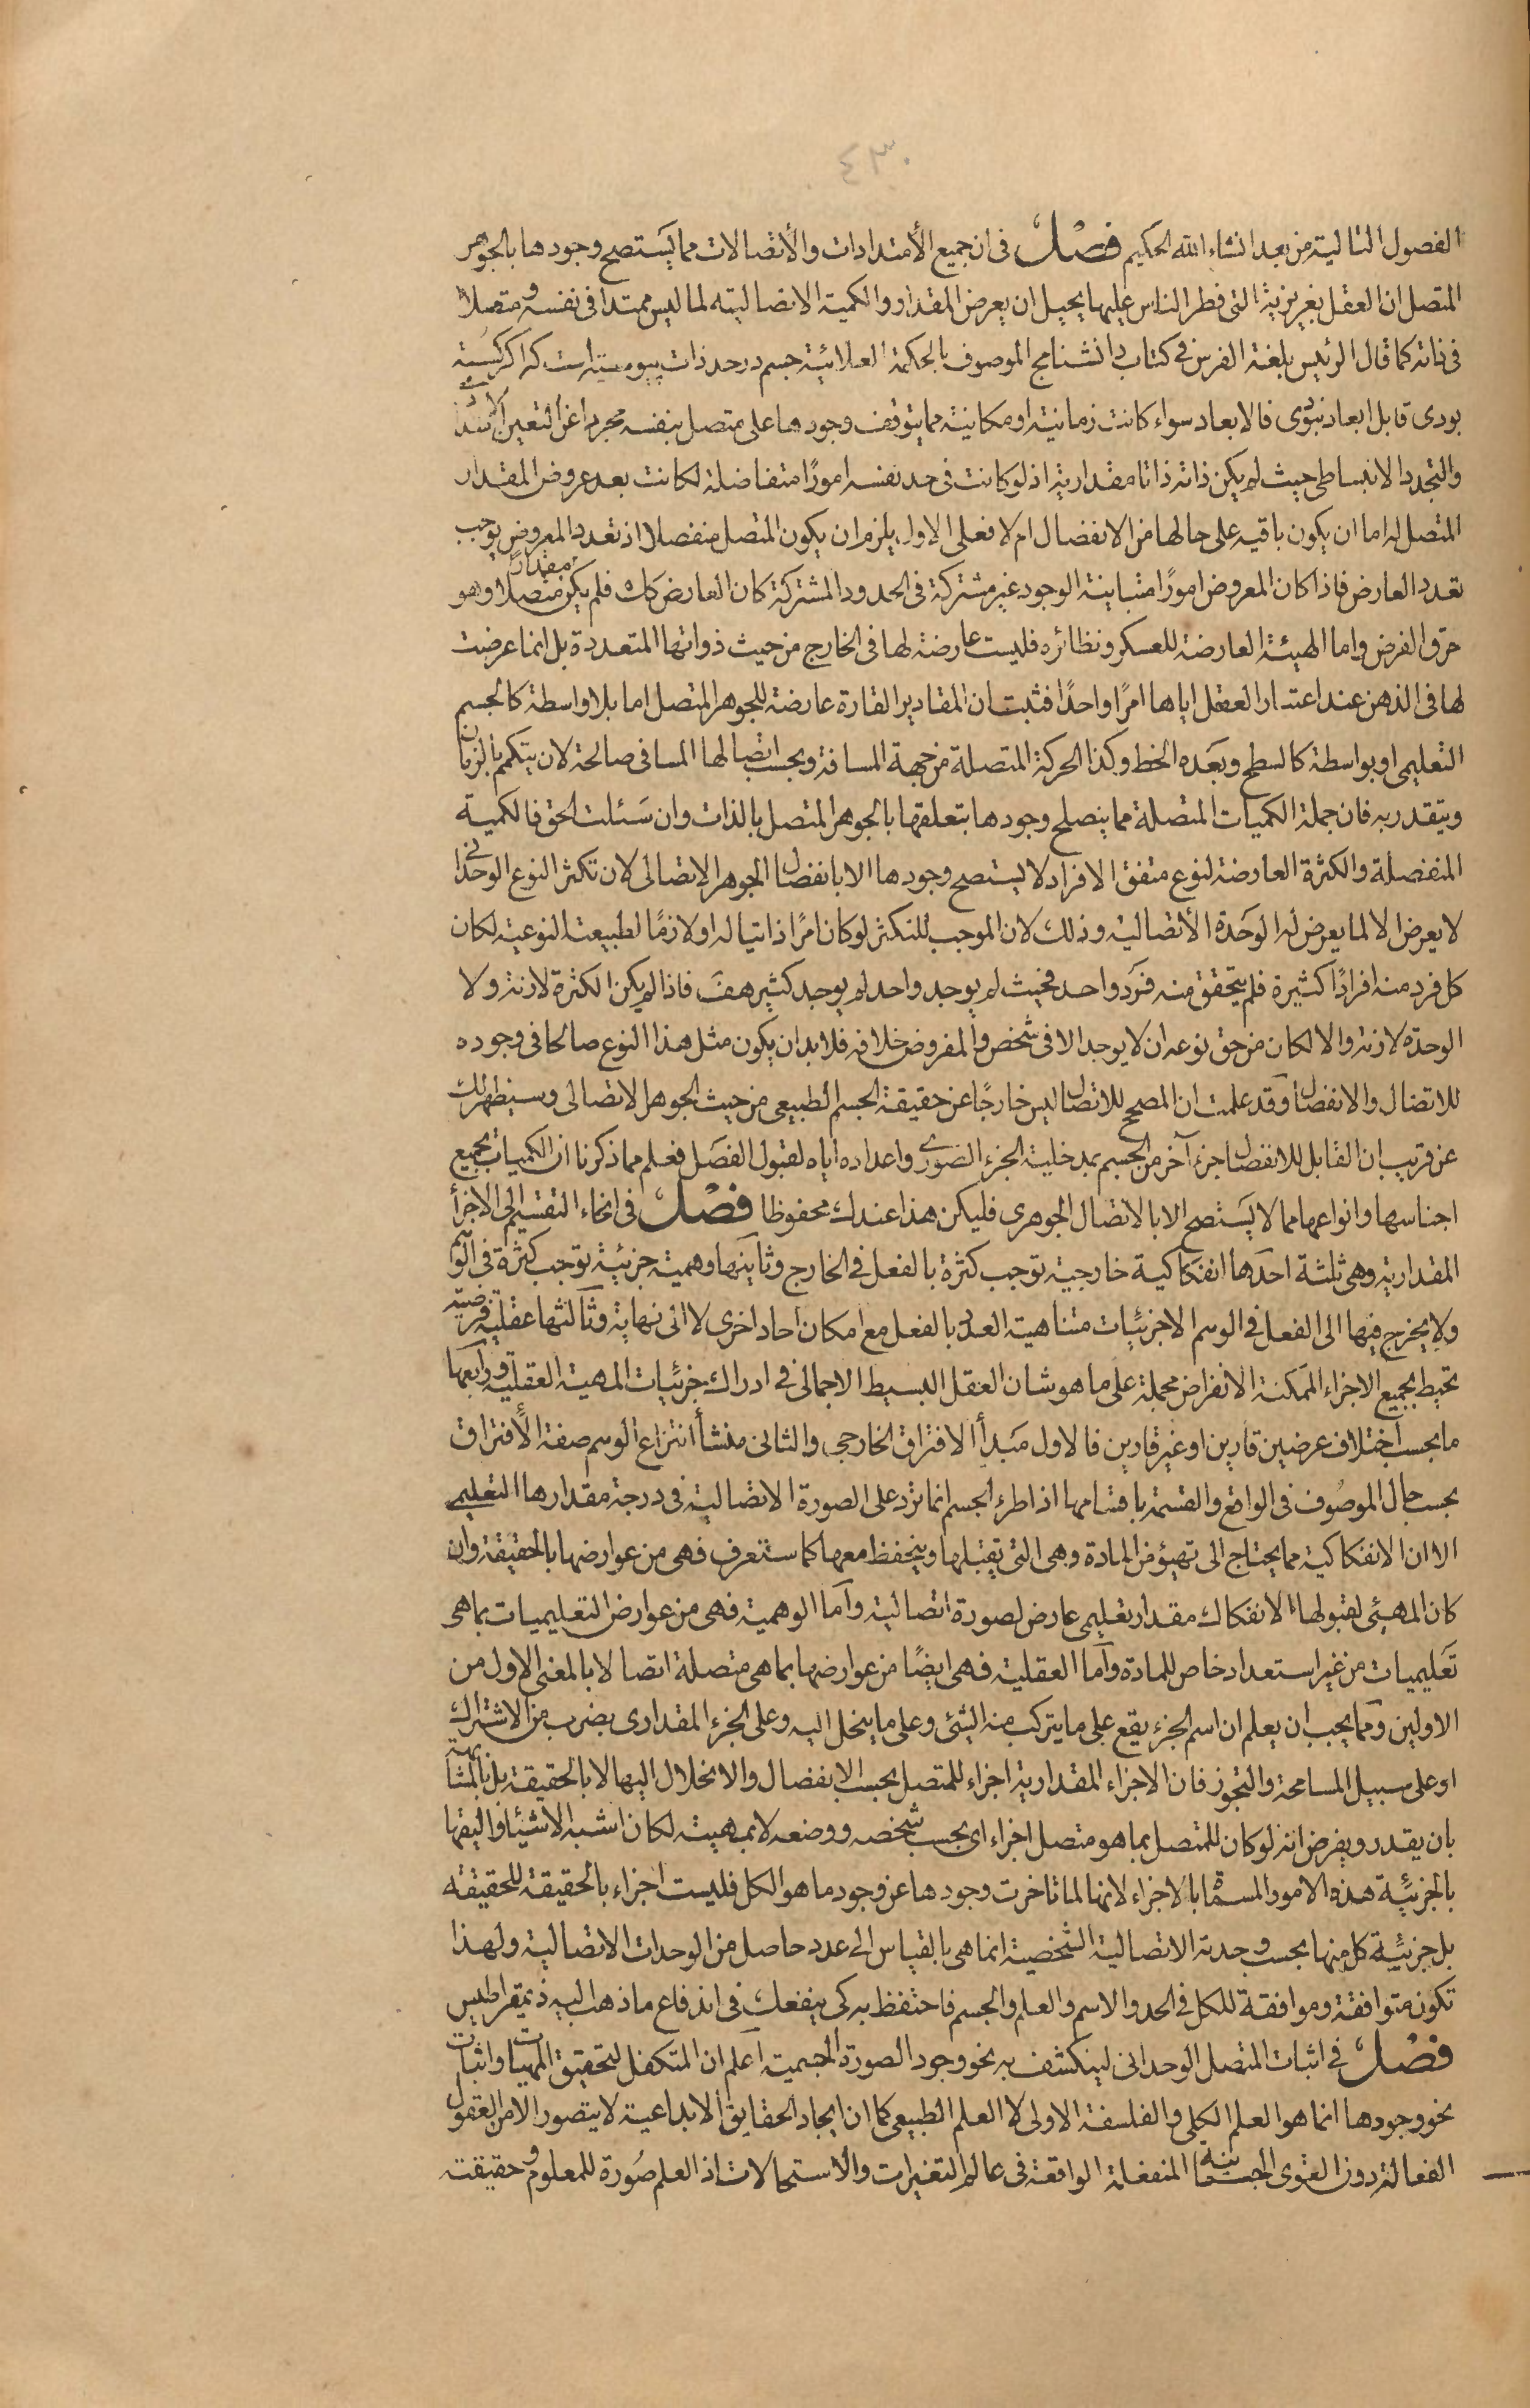 ٤٣٠
الفصول التالية من بعد انشاء الله الحكيم فصل فى ان جميع الأمتدادات والأتصالات مما يستصح وجودها بالجوهر
المتصل ان العقل بغريزيته التى فطر الناس عليها يحيل ان يعرض المقدار والكمية الاتصالية لما ليس ممتدا فى نفسه ومتصلا
فى ذاته كما قال الرئيس بلغة الفرس فى كتاب دانشنامج الموصوف بالحكمة العلائية جسم در حد ذات پيوسته است كه اكر كسسته
بودى قابل ابعاد نبودى فالابعاد سواء كانت زمانية او مكانية مما يتوقف وجودها على متصل بنفسه مجرد اعن التعين الامتدادى
والتجدد الانبساطى حيث لم يكن ذاته ذاتا مقدارية اذ لو كانت فى حد نفسه امورًا متفاصلة لكانت بعد عروض المقدار
المتصل له اما ان يكون باقيه على حالها من الانفصال ام لا فعلى الاول يلزم ان يكون المتصل منفصلا اذ تعدد المعروض يوجب
تعدد العارض فاذا كان المعروض امورًا متباينة الوجود غير مشتركة فى الحدود المشتركة كان العارض كك فلم يكن مقدارًا متصلًا وهو
خرق الفرض واما الهيئة العارضة للعسكر ونظائره فليست عارضة لها فى الخارج من حيث ذواتها المتعددة بل انما عرضت
لها فى الذهن عند اعتبار العقل اياها امرًا واحدًا فثبت ان المقادير القارة عارضة للجوهر المتصل اما بلا واسطة كالجسم
التعليمى او بواسطة كالسطح وبعده الخط وكذا الحركة المتصلة من جهة المسافة وبحسب اتصالها المسافى صالحة لان يتكمم بالزمان
ويتقدر به فان جملة الكميات المتصلة مما ينصلح وجودها بتعلقها بالجوهر المتصل بالذات وان سئلت الحق فالكمية
المنفصلة والكثرة العارضة لنوع متفق الافراد لا يستصح وجودها الا بانفصال الجوهر الاتصالى لان تكثر النوع الوحدانى
لا يعرض الا لما يعرض له الوحدة الأتصالية وذلك لان الموجب للتكثر لو كان امرًا ذاتيا له او لازمًا لطبيعته النوعية لكان
كل فرد منه افرادًا كثيرة فلم يتحقق منه فرد واحد فحيث لم يوجد واحد لم يوجد كثير هف فاذا لم يكن الكثرة لازمة ولا
الوحدة لازمة والا لكان من حق نوعه ان لا يوجد الا فى شخص والمفروض خلافه فلا بد ان يكون مثل هذا النوع صالحا فى وجوده
للاتصال والانفصال وقد علمت ان المصحح للاتصال ليس خارجًا عن حقيقة الجسم الطبيعى من حيث الجوهر الاتصالى وسيظهر لك
عن قريب ان القابل للانفصال جزء آخر من الجسم بمدخلية الجزء الصورى واعداده اياه لقبول الفصل فعلم مما ذكرنا ان الكميات بجميع
اجناسها وانواعها مما لا يستصح الا بالاتصال الجوهرى فليكن هذا عندك محفوظا فصل فى انحاء التقسيم الى الاجزاء
المقدارية وهى ثلثة احدها انفكاكية خارجية توجب كثرة بالفعل فى الخارج وثانيتها وهمية جزئية توجب كثرة فى الوهم
ولا يخرج فيها الى الفعل فى الوهم الا جزئيات متناهية العدد بالفعل مع امكان احاد اخرى لا الى نهاية وثالثتها عقلية فرضية
تحيط بجميع الاجزاء الممكنة الانفراض مجملة على ما هو شان العقل البسيط الاجمالى فى ادراك جزئيات المهية العقلية ورابعها
ما بحسب اختلاف عرضين قارين او غير قارين فالاول مبدأ الافتراق الخارجى والثانى منشأ انتزاع الوهم صفة الأفتراق
بحسب حال الموصوف فى الواقع والقسمة باقسامها اذا طرء الجسم انما ترد على الصورة الاتصالية فى درجة مقدارها التعليمى
الا ان الانفكاكية مما يحتاج الى تهيؤ من المادة وهى التى تقبلها وينحفظ معها كما ستعرف فهى من عوارضها بالحقيقة وان
كان المهيئى لقبولها الانفكاك مقدار تعليمى عارض لصورة اتصالية وأما الوهمية فهى من عوارض التعليميات بما هى
تعليميات من غير استعداد خاص للمادة وأما العقلية فهى ايضًا من عوارضها بما هى متصلة اتصالا بالمعنى الاول من
الاولين ومما يجب ان يعلم ان اسم الجزء يقع على ما يتركب منه الشئ وعلى ما ينحل اليه وعلى الجزء المقدارى بضرب من الاشتراك
او على سبيل المسامحة والتجوز فان الاجزاء المقدارية اجزاء للمتصل بحسب الانفصال والانحلال اليها لا بالحقيقة بل بالمشابهة
بان يقدر ويفرض انه لو كان للمتصل بما هو متصل اجزاء اى بحسب شخصه ووضعه لا بمهيته لكان اشبه الاشياء واليقها
بالجزئية هذه الامور المسماة بالاجزاء لانها لما تاخرت وجودها عن وجود ما هو الكل فليست اجزاء بالحقيقة للحقيقة
بل جزئية كل منها بحسب وحدته الاتصالية الشخصية انما هى بالقياس الى عدد حاصل من الوحدات الاتصالية ولهذا
تكون متوافقة وموافقة للكل فى الحد والاسم والعلم والجسم فاحتفظ به كى ينفعك فى اندفاع ما ذهب اليه ذيمقراطيس
فصل فى اثبات المتصل الوحدانى لينكشف به نحو وجود الصورة الجسمية اعلم ان المتكفل لتحقيق المهيات واثبات
نحو وجودها انما هو العلم الكلى والفلسفة الاولى لا العلم الطبيعى كما ان ايجاد الحقايق الابداعية لا يتصور الا من العقول
الفعالة دون القوى الجسمانية المنفعلة الواقعة فى عالم التغيرات والأستحالات اذ العلم صورة للمعلوم وحقيقته